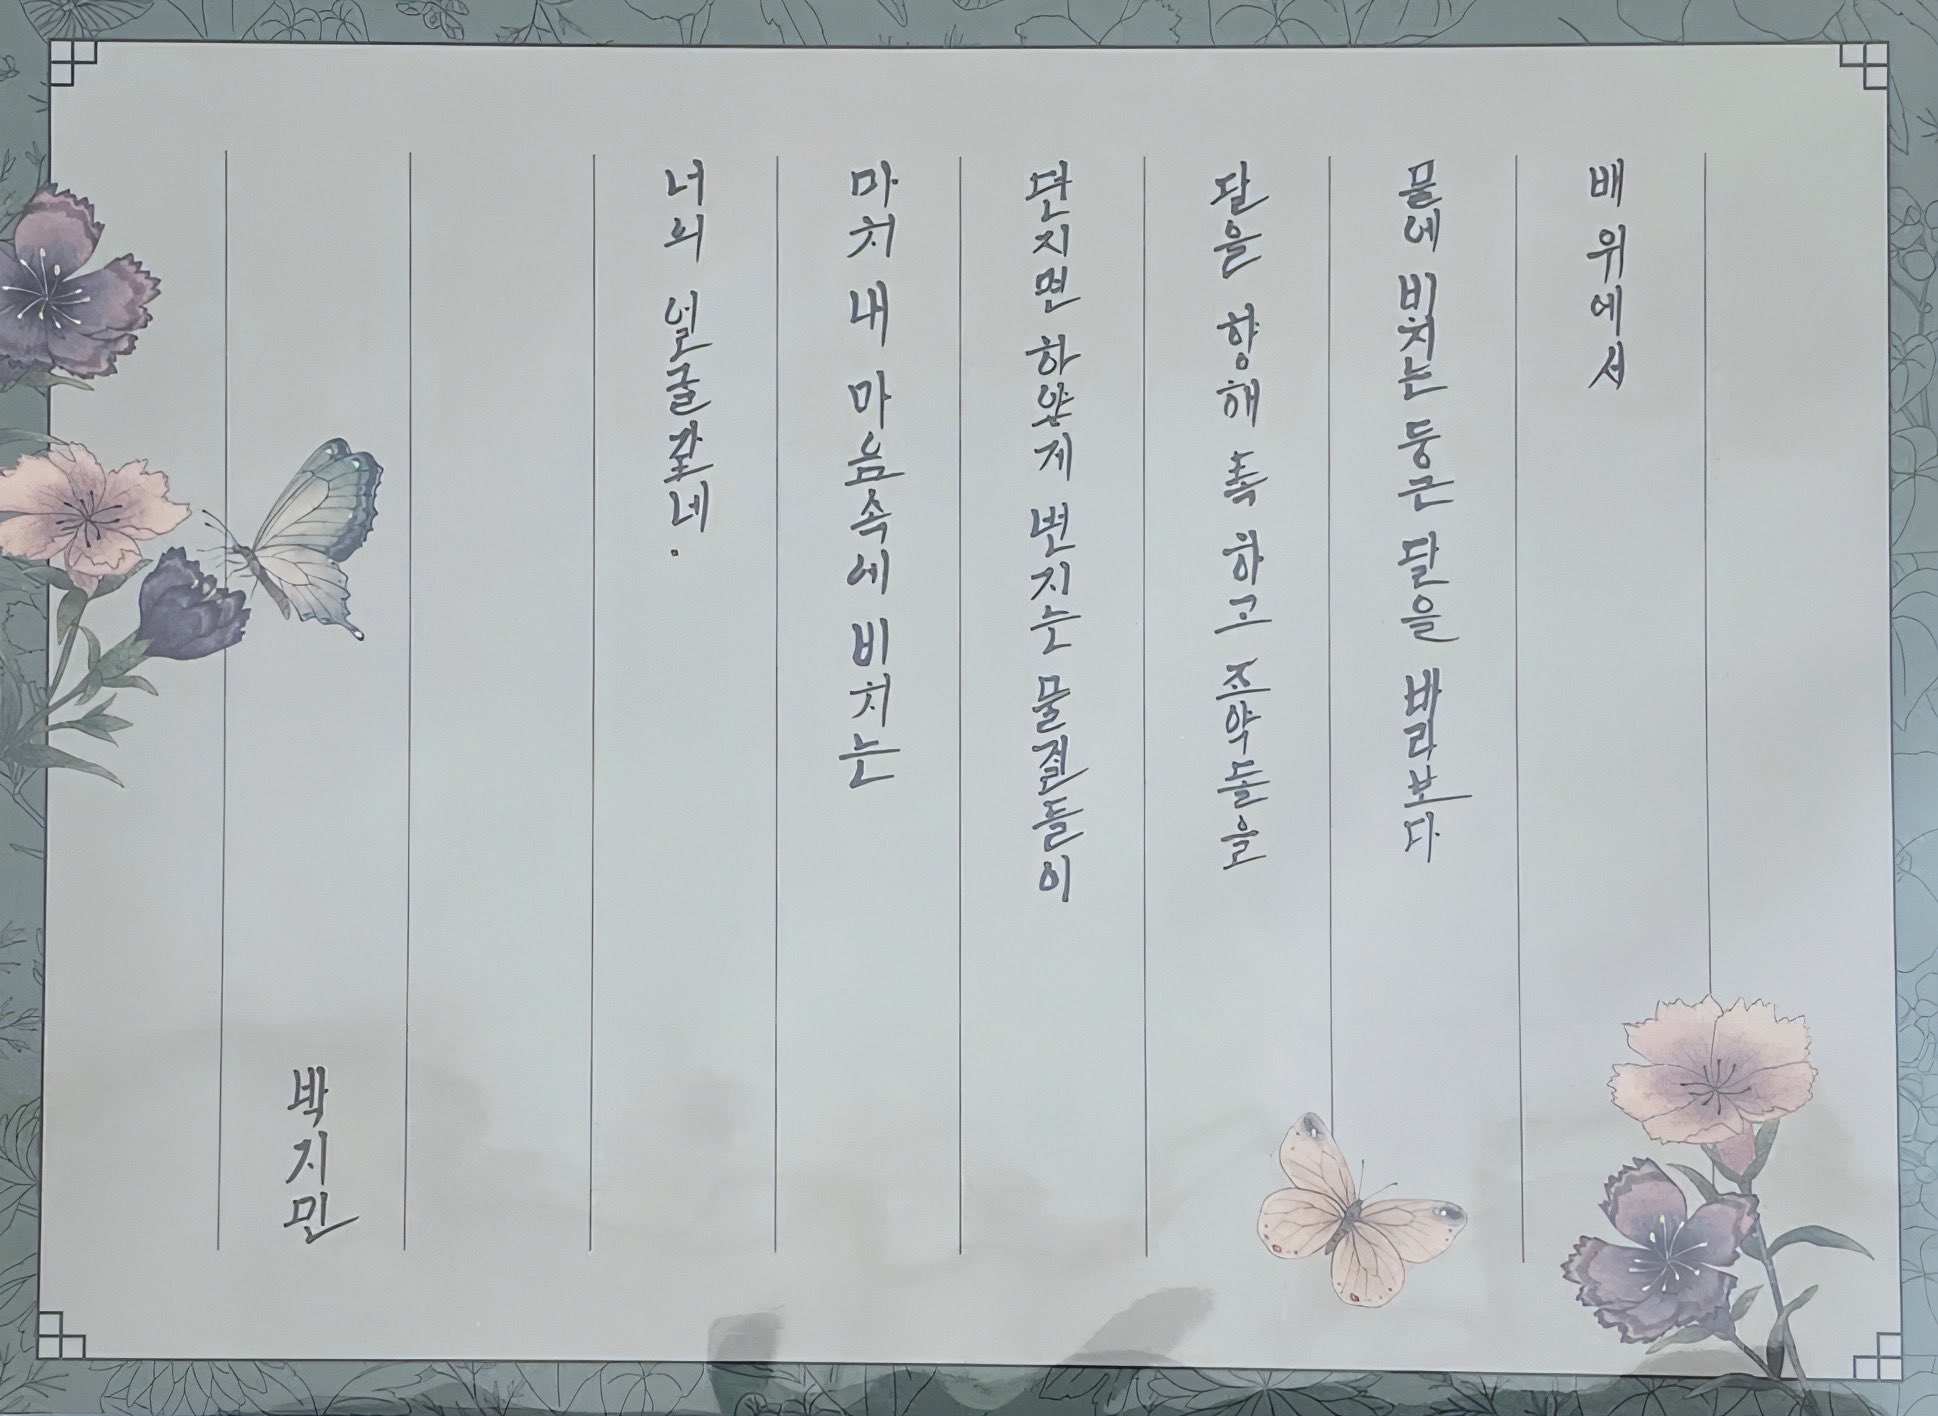 배 위에서
물에 비치는 둥근 달을 바라보다
달을 향해 톡 하고 조약돌을
던지면 하얗게 번지는 물결들이
마치 내 마음속에 비치는
너의 얼굴같네.
박지민